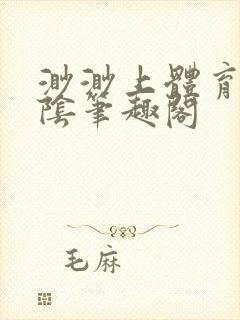 渺渺上體育
陰筆趣閣
毛麻